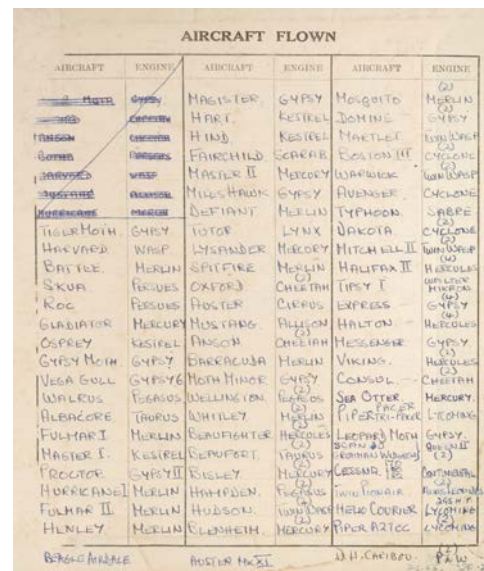 AIRCRAFT FLOWN
AIRCRAFT ENGINE AIRCRAFT ENGINE AIRCRAFT ENGINE
(2)
MOTH GYPSY MAGISTER. GYPSY MOSQUITO MERLIN
(2)
CHEETAH HART. KESTREL DOMINIE GYPSY
ANSON CHEETAH HIND KESTREL MARTLET TWIN WASP
(2)
BOTHA PERSEUS FAIRCHILD SCARAB BOSTON III CYCLONE
(2)
HARVARD WASP MASTER II MERCURY WARWICK TWIN WASP
MUSTANG ALLISON MILES HAWK GYPSY AVENGER CYCLONE
HURRICANE MERLIN DEFIANT MERLIN TYPHOON. SABRE
(2)
TIGER MOTH. GYPSY TUTOR LYNX DAKOTA. CYCLONE
(2)
HARVARD WASP LYSANDER MERCURY MITCHELL II TWIN WASP
(4)
BATTLE. MERLIN SPITFIRE MERLIN HALIFAX II HERCULES
(2)
SKUA PERSUES OXFORD CHEETAH TIPSY I WALTER MIKRON
(4)
ROC PERSUES AUSTER CIRRUS EXPRESS GYPSY
(4)
GLADIATOR MERCURY MUSTANG. ALLISON HALTON HERCULES
(2)
OSPREY KESTREL ANSON CHEETAH MESSENGER GYPSY
(2)
GYPSY MOTH GYPSY BARRACUDA MERLIN VIKING. HERCULES
(2)
VEGA GULL GYPSY 6 MOTH MINOR GYPSY CONSUL. CHEETAH
(2)
WALRUS PEGASUS WELLINGTON. PEGASUS SEA OTTER. MERCURY.
(2) PACER
ALBACORE TAURUS WHITLEY MERLIN PIPER TRI-PACER LYCOMING
(2)
FULMAR I MERLIN BEAUFIGHTER HERCULES LEOPARD MOTH GYPSY.
(2)
MASTER I. KESTREL BEAUFORT. TAURUS GRUMMAN WIDGEON (2)
(2)
PROCTOR GYPSY II BISLEY MERCURY CESSNA. CONTINENTAL
(2)
HURRICANE I MERLIN HAMPDEN. PEGASUS TWIN PIONAIR
(2)
FULMAR II MERLIN HUDSON. TWIN WASP HELIO COURIER LYCOMING
(2) (2)
HENLEY MERLIN BLENHEIM. MERCURY PIPER AZTEC LYCOMING
(2)
BEAGLE AIRDALE AUSTER MK XI D.H. CARIBOU. P & W